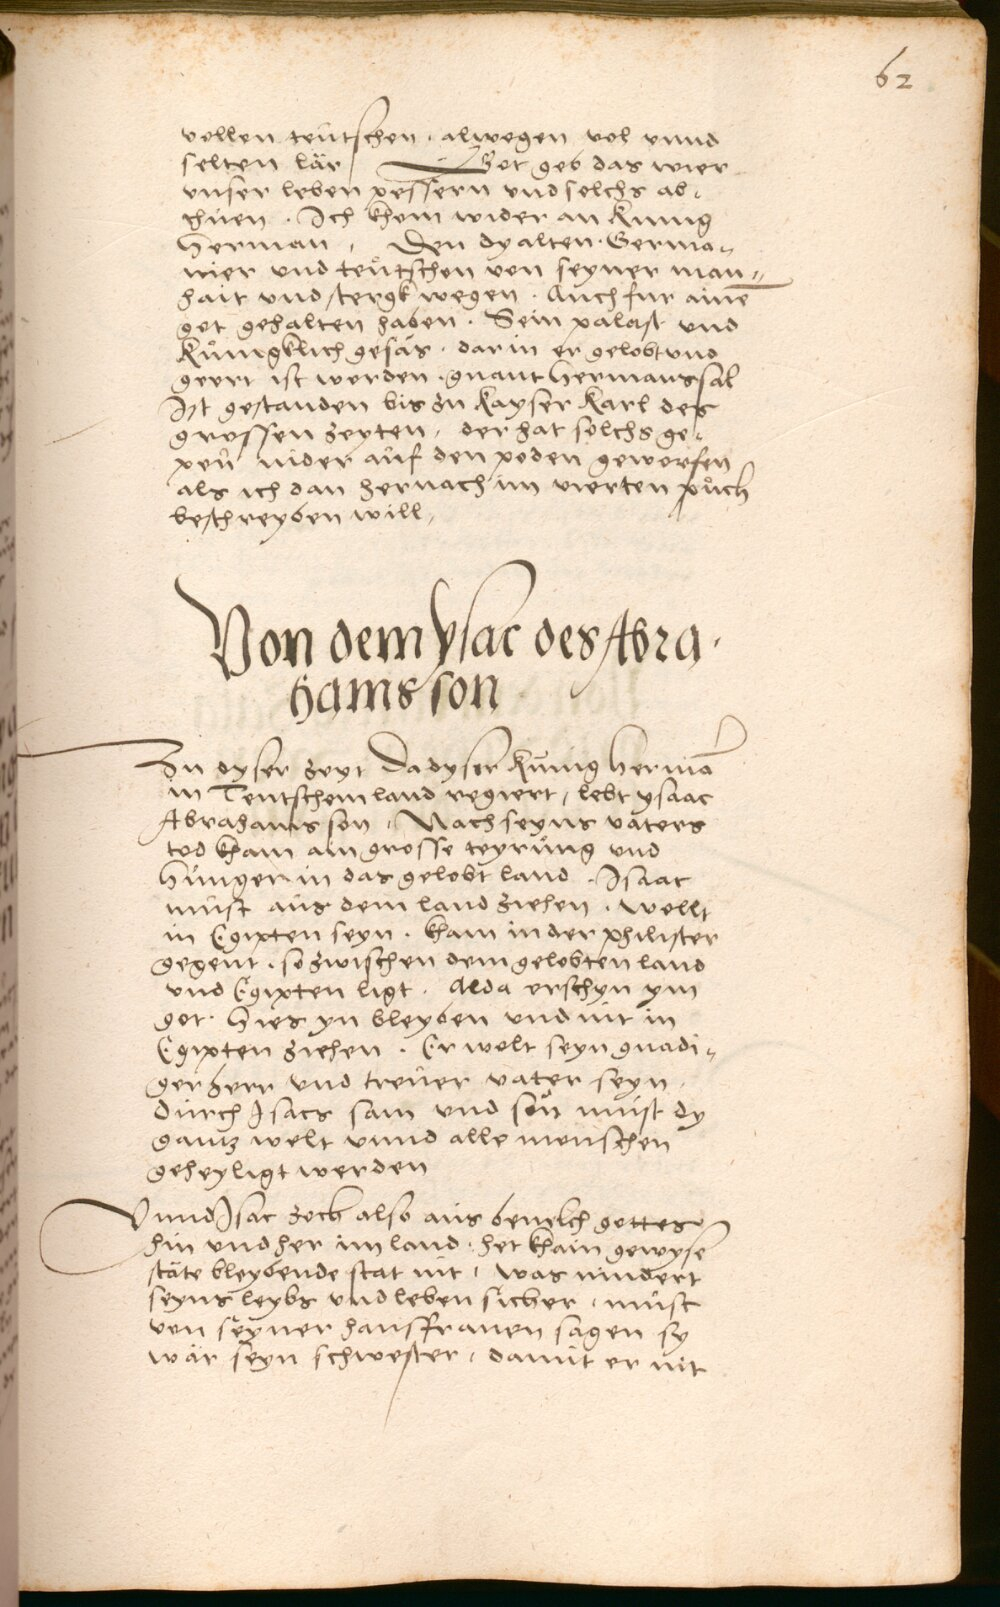 62
vollen teutschen . alwegen vol vnnd
selten lär / Got geb das wier
vnser leben pessern vnd solchs ab,
thuen . Ich khom wider an Kunig
Herman , Den dy alten Germa„
nier vnd teutschen von seyner man„
hait vnd stergk wegen . Auch fur ainē
got gehalten haben . Sein palast vnd
Kůnigklich gesäs . darin er gelobt vnd
geert ist worden . gnant Hermanssal
Ist gestanden bis zu Kayser Karl des
grossen zeyten , der hat solchs ge,
peu nider auf den poden geworfen
als ich dan hernach im vierten půch
beschreyben will,
Von dem ysac des Abra.
hams son
Zu dyser zeyt Da dyser Kůnig Hermā
in Teutschem land regiert , lebt ysaac
Abrahams son , Nach seyns vaters
tod kham ain grosse teyrůng vnd
Hůnger in das gelobt land . Isaac
můst aus dem land ziehen . wollt
in Egipten seyn . kham in der philister
gegent . so zwischen dem gelobten land
vnd Egipten ligt . Alda erschyn ym
got . Hies yn bleyben vnd nit in
Egipten ziehen . Er wolt seyn gnadi„
ger herr vnd treuer vater seyn .
Durch Isacs sam vnd son můst dy
gantz welt vnnd alle menschen
geheyligt werden
Vnnd Isac zoch also aus bevelch gottes
hin vnd her im land . het khain gewyse
stäte bleybende stat nit , was nindert
seyns leybs vnd leben sicher , můst
von seyner hausfrauen sagen sy
wär seyn schwester , damit er nit